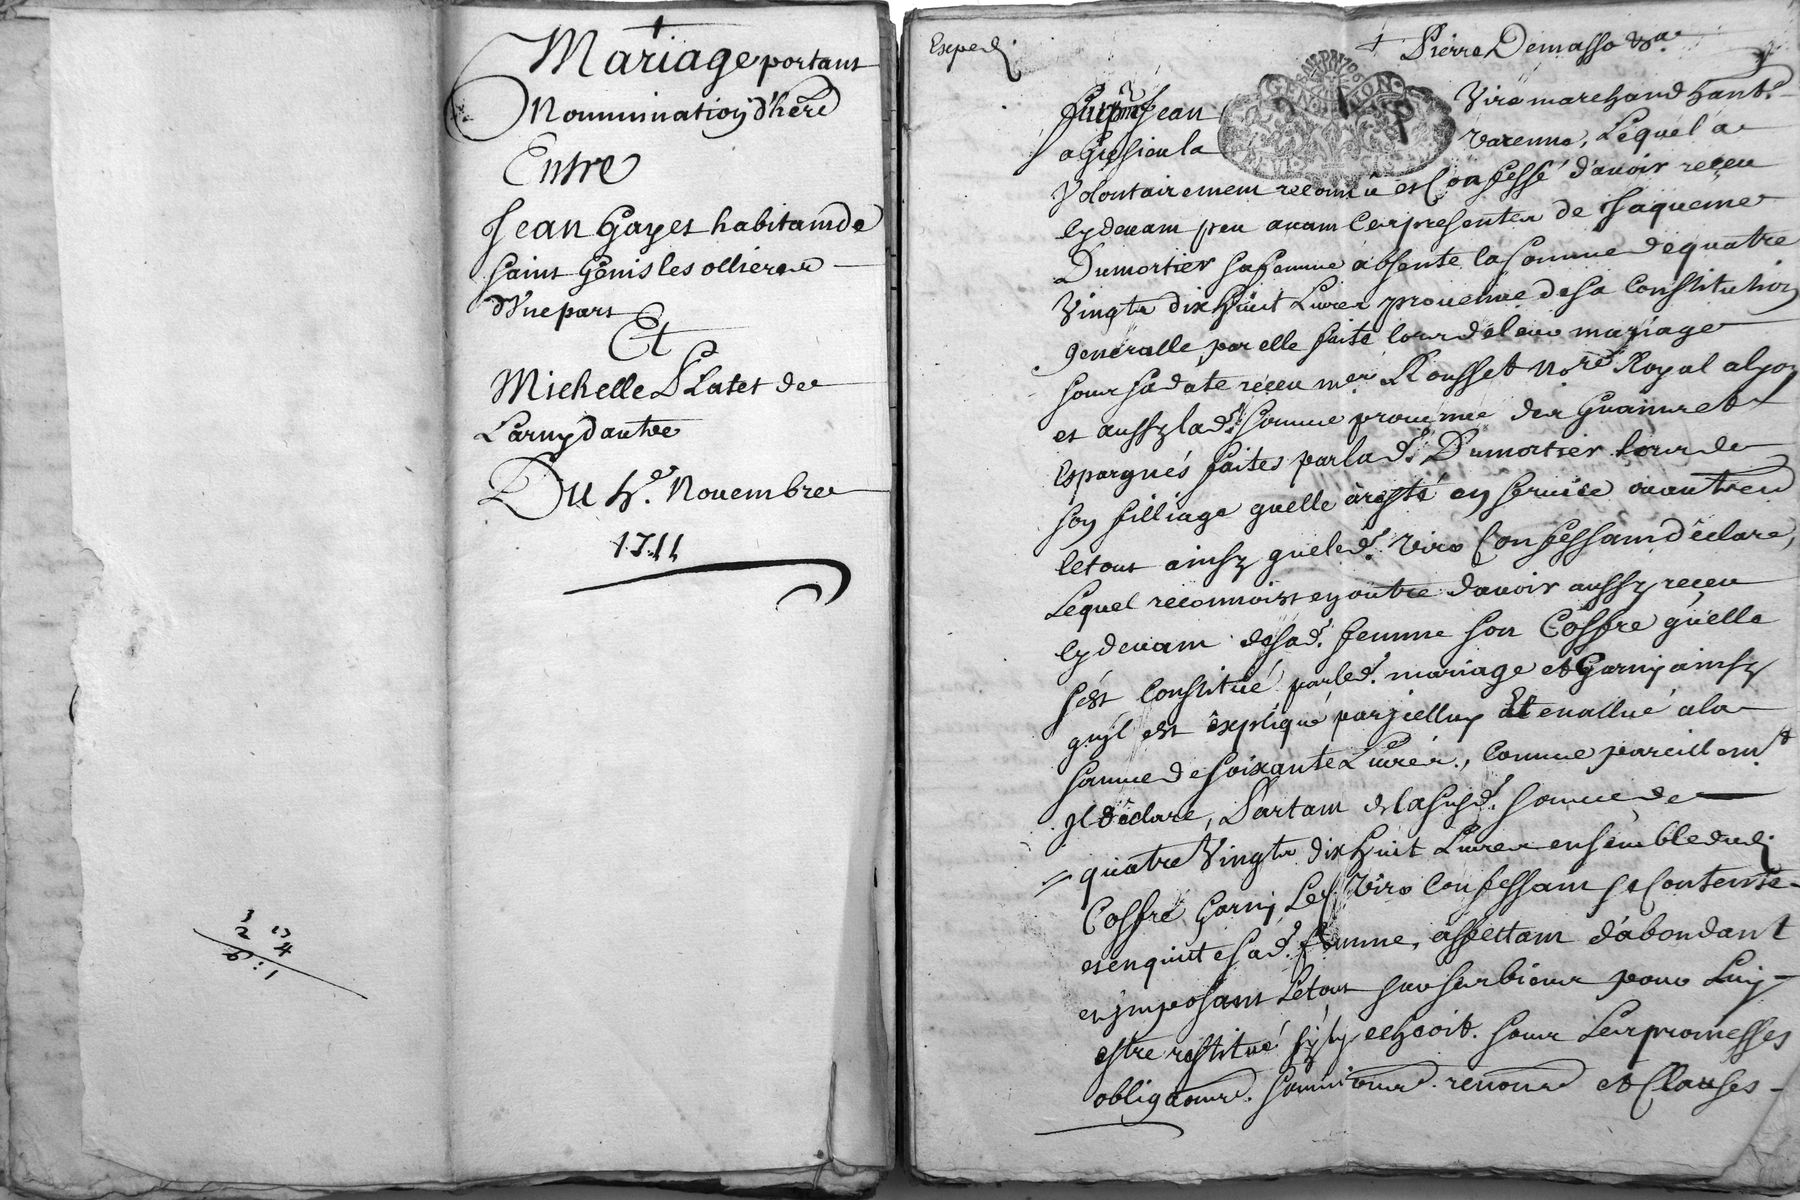 Mariage portant
Nommination d'here
Entre
Jean Gayet habitant de
Saint Genis les ollieres
d'Une part
Et
Michelle Platet de
Larny d'autre
Du 4e. Novembre
1711
3
2 13
4
6:1
Exped
+ Pierre Demasso
GEN LYON
Jean Viro marchand hant
a Gresieu la Varenne, Lequel a
Volontairement reconnu et Confessé d'avoir reçeu
cydevant peu avant ces presentes de Jaqueme
Dumortier sa femme absente la somme de quatre
Vingts dix huit Livres provenue de sa Constitution
generalle par elle faite lors de leur mariage
sous sa date reçeu me Rousset nore Royal a Lyon
et aussy lad. somme provenue des Guains et
Espargnés faites par lad. Dumortier lors de
son filliage quelle a resté en service ou autrem
le tout ainsy que led. Viro Confessant déclare,
Lequel reconnoist en outre d'avoir aussy reçeu
cydevant de sad. femme son Coffre quelle
s'est Constitué par led. mariage et Garny ainsy
qu'il est éxpliqué par jcelluy et evallué a la
somme de soixante Livres, comme pareillemt
jl déclare, Partant de la susd. somme de
quatre Vingts dix huit Livres ensemble dud.
Coffre Garny Led. Viro Confessant se Contente
et en quitte sad. femme, affettant d'abondant
et jmposant le tout sur ses biens pour Luy
estre restitué s'jl y echeoit. sous Les promesses
obligaons. soumissions. renons et Clauses